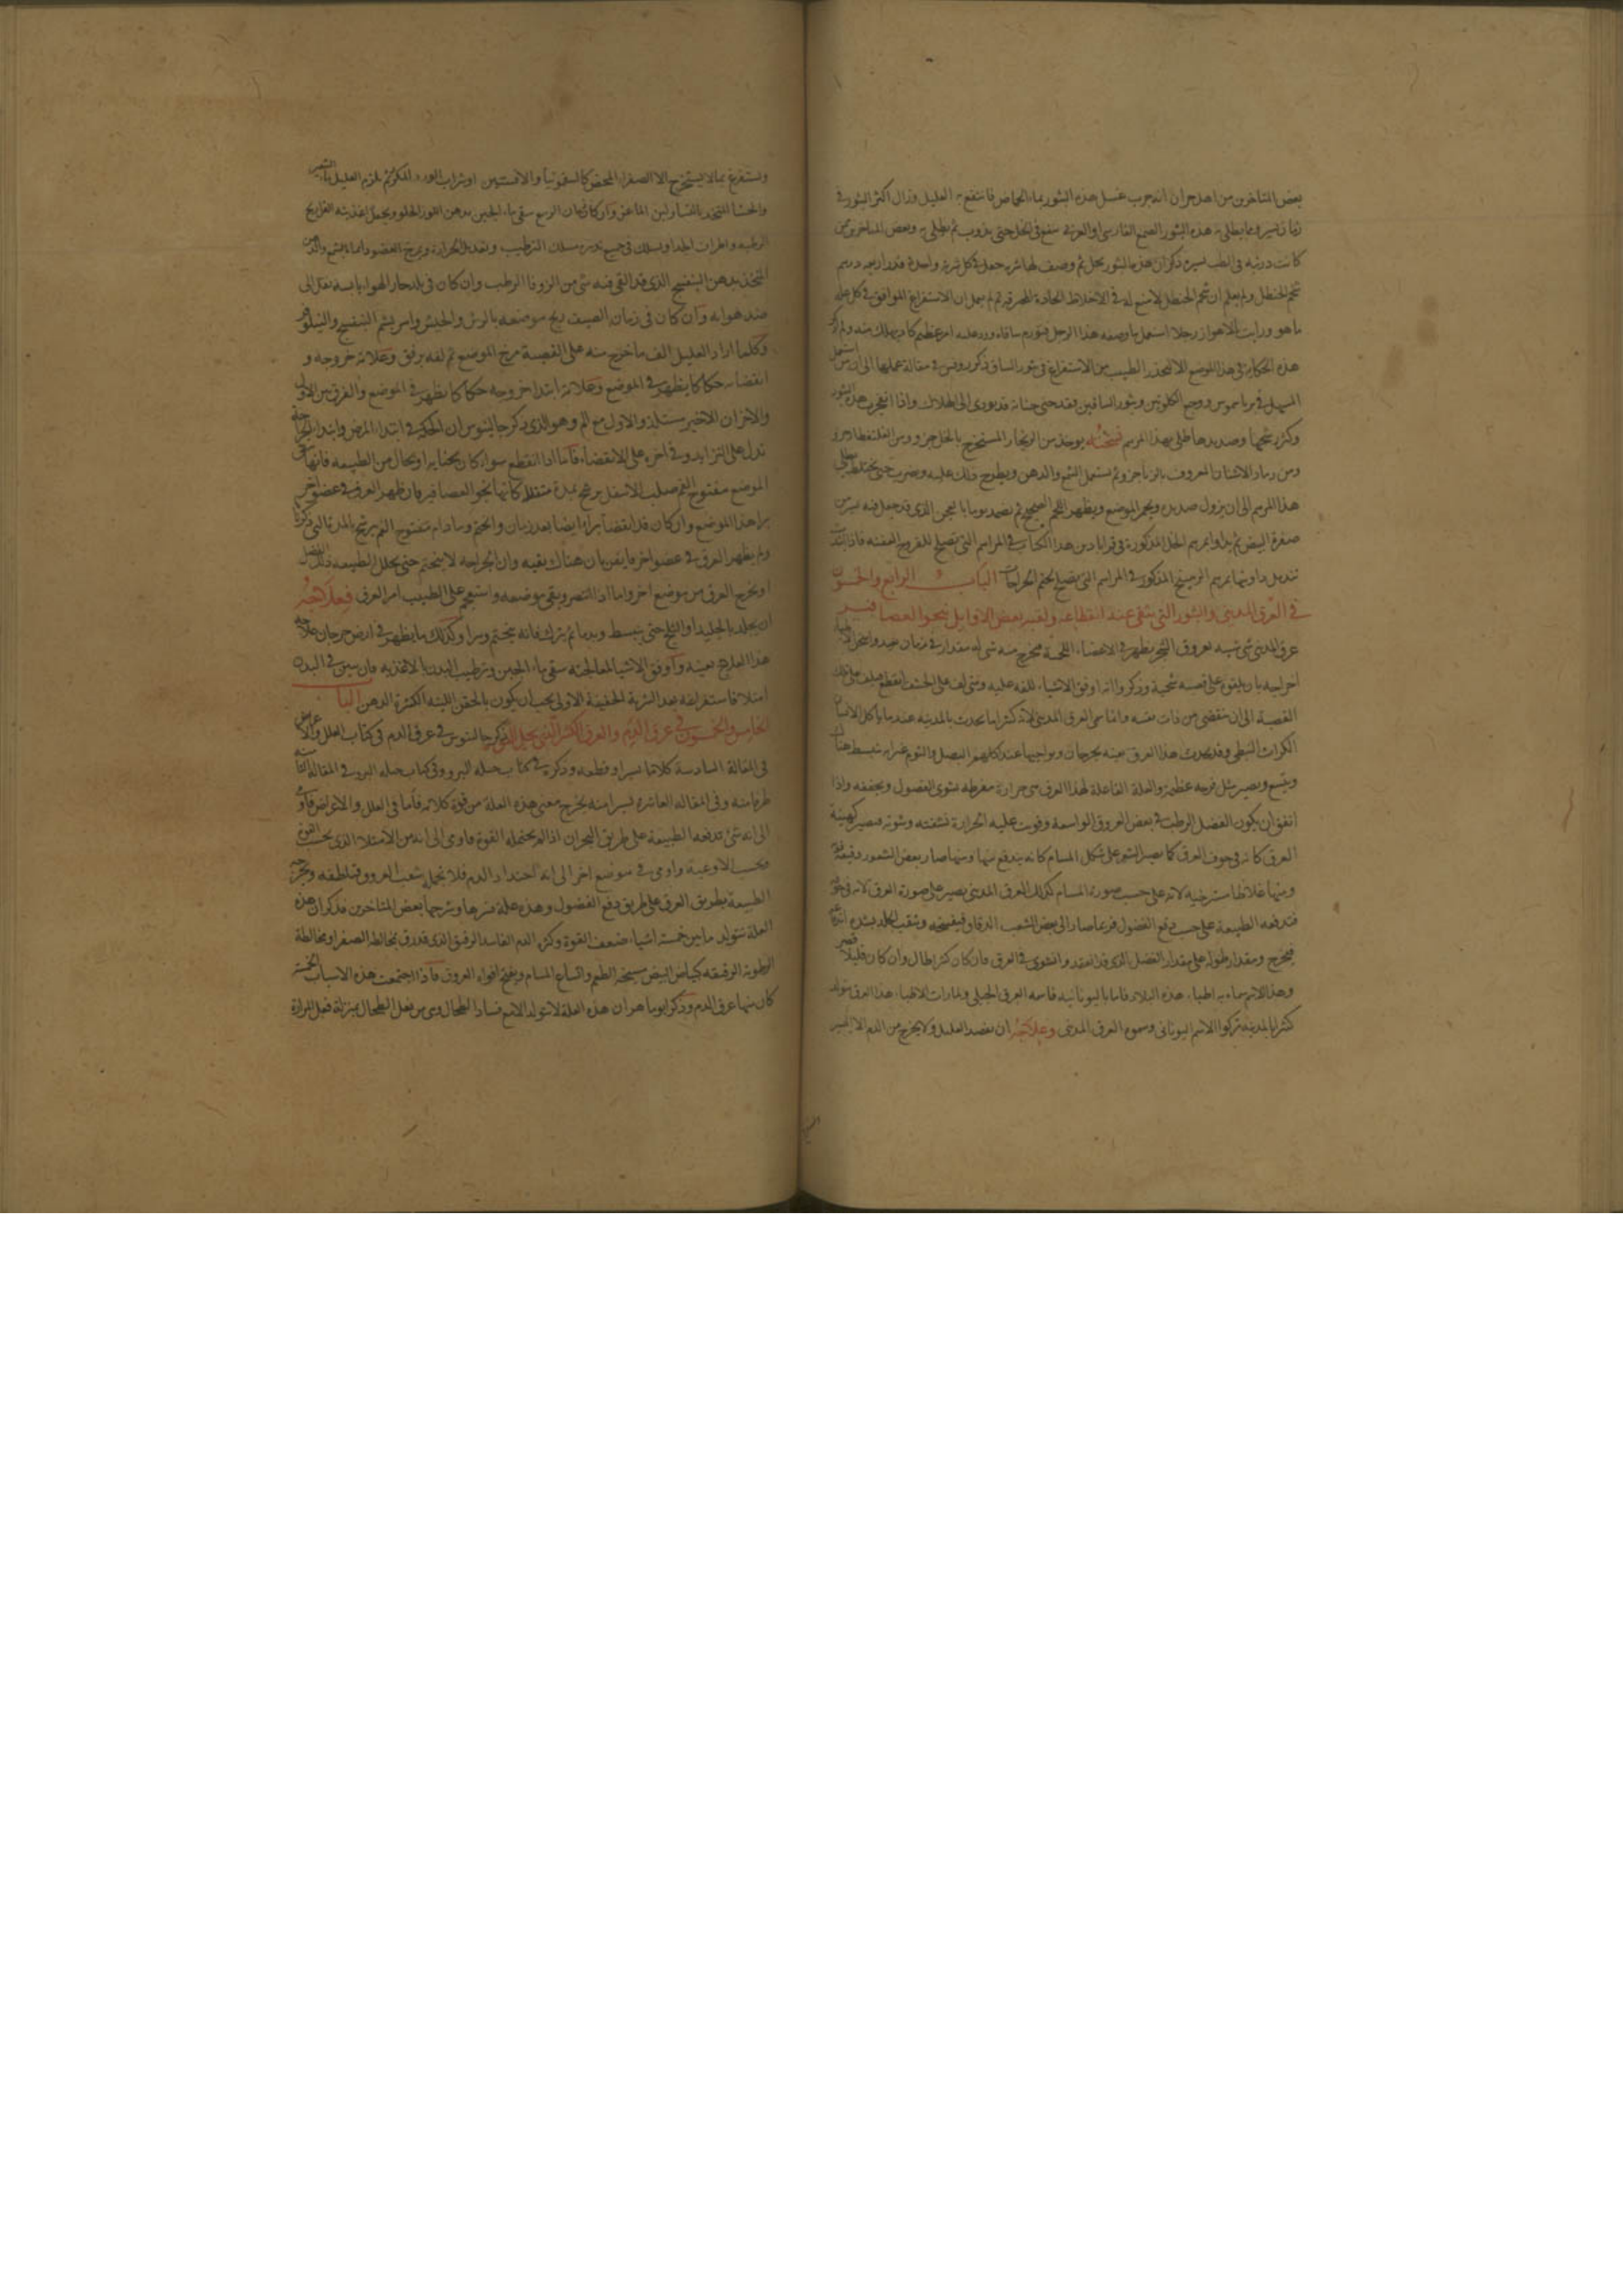 بعض المتاخرين من اهل حران انه جرب غسل هذه البثور بماء الحماض فانتفع به العليل وزال اكثر البثور في
زمان يسير ومما يطلى به هذه البثور الصمغ الفارسي او العربي ينقع في الخل حتى يذوب ثم يطلى به وبعض المتاخرين ممن
كانت دربته في الطب يسيرة ذكر ان هذه البثور بخل ثم وصف لها شربة جعل في كل شربة واحدة قدر اربعة درهم
شحم الحنظل ولم يعلم ان شحم الحنظل لا ينبغي له في الاخلاط الحادة المحرقة ثم لم يعمل ان الاستفراغ الموافق في كل علة
ما هو ورايت بالاهواز رجلا استعمل ما وصفه هذا الرجل فتورم ساقاه وورد عليه امر عظيم كاد يهلك منه ولم اذكر
هذه الحكاية في هذا الموضع الا ليحذر الطبيب من الاستفراغ في بثور الساق ذكر روفس في مقالة عملها الى ان من استعمل
المسهل في ووجع الكليتين وبثور الساقين فقد جنى جناية قد يودي الى الهلاك واذا انفجرت هذه البثور
وكثر قيحها وصديدها طلي بهذا المرهم نسخته يوخذ من الزنجار المستخرج بالخل جزو ومن القلقطار جزو
ومن رماد الاشنان المعروف جزو ثم يستعمل الشمع والدهن ويطرح ذلك عليه ويضرب حتى يختلط يطلى
هذا المرهم الى ان يزول صديده ويحمر الموضع ويظهر اللحم الصحيح ثم يضمد يوما بالعجين الذي قد جعل فيه يسير من
صفرة البيض ثم يداوا بمرهم الخل المذكورة في قرابادين هذا الكتاب في المراهم التي تصلح للقروح العفنة فاذا
تندمل داوتها بمرهم المذكور في المراهم التي تصلح لختم الجراحات الباب الرابع والخمسون
في العرق المديني والبثور التي تبقى عند انقطاعه ولقبه بعض الاوايل بنحو العصافير
عرق المديني شي شبيه بعروق الشجر يظهر في الاعضاء اللحمة يخرج منه شي له مقدار في زمان بعيد
اخراجه بان يلتوي على قصبة وذكروا انه اوفق الاشياء للفه عليه ومتى لف على الخشب انقطع فيلف على تلك
القصبة الى ان ينقضي من ذات نفسه وانما سمي العرق المديني لانه كثيرا ما يحدث بالمدينة عندما ياكل الانسان
الكراث النبطي وقد يحدث هذا العرق بعينه بجرجان ونواحيها عند اكلهم البصل والثوم غير انه ينبسط هناك
ويتسع ويصير مثل قرحة عظيمة والعلة الفاعلة لهذا العرق هي حرارة مفرطة تشوي الفضول وتجففه واذا
اتفق ان يكون الفضل الرطب في بعض العروق الواسعة وقويت عليه الحرارة نشفته وشوته فيصير كهيئة
العرق كانه في جوف العرق كما يصير الشعر على شكل المسام كانه يندفع منها ومنها صار بعض الشعور دقيقة
ومنها غلاظا مسترخية لانه على حسب صورة المسام كذلك العرق المديني يصير على صورة العرق لانه في جوفه
فتدفعه الطبيعة على حسب دفع الفضول فربما صار الى بعض الشعب الدقاق فيفسخه ويثقب الجلد بشدة
فيخرج ومقدار طوله على مقدار الفضل الذي قد انعقد وانشوى في العرق فان كان كثيرا طال وان كان قليلا قصر
وهذا الاسم سماه به اطباء هذه البلاد فاما باليونانية فاسمه العرق الجبلي ولما رات الاطباء هذا العرق يتولد
كثيرا بالمدينة تركوا الاسم اليوناني وسموه العرق المديني وعلاجه ان يفصد العليل ولا يخرج من الدم الا اليسير
ويستفرغ بما لا يستخرج الا الصفراء المحض كالسقمونيا والافسنتين او شراب الورد المكرر ثم يلزم العليل ماء الشعير
والحشا المتخذ بالنشا ولبن الماعز وان كان زمان الربيع سقي ماء الجبن بدهن اللوز الحلو ويجعل اغذيته الفراريج
الرطبة واطراف الجدا ويسلك في جميع تدبيره مسلك الترطيب وتعديل الحرارة ويمرخ العضو دائما بالشمع والدهن
المتخذ بدهن البنفسج الذي قد القي فيه شي من الزوفا الرطب وان كان في بلد حار الهواء يابسه نقل الى
ضد هوايه وان كان في زمان الصيف برد موضعه بالرش والخيش وامر بشم البنفسج والنيلوفر
وكلما اراد العليل الف ما خرج منه على القصبة مرخ الموضع ثم لفه برفق وعلامة خروجه و
انقضايه حكاكا يظهر في الموضع وعلامة ابتدا خروجه حكاكا يظهر في الموضع والفرق بين الاول
والاخر ان الاخير مستلذ والاول مع الم وهو الذي ذكر جالينوس ان الحكة في ابتداء المرض وابتدا الجراحة
تدل على التزايد وفي اخره على الانقضاء فاما اذا انقطع سوا كان بجناية او بحال من الطبيعة فانها
الموضع مفتوح الفم صلب الاسفل يرشح بمدة كانها نحو العصافير فان ظهر العرق في عضو اخر
برا هذا الموضع وان كان قد انقضا برا ايضا بعد زمان والختم وما دام مفتوح الفم يرشح بالمدة التي ذكرنا
ولم يظهر العرق في عضو اخر فايقن بان هناك بقية وان الجراحة لا يختم حتى يحلل الطبيعة ذلك الفضل
او يخرج العرق من موضع اخر واما اذا انتصر وبقي موضعه واستعجم على الطبيب امر العرق فعلاجه
ان يجلد بالجليد او الثلج حتى ينبسط ويدما ثم يترك فانه يختم ويبرا وكذلك ما يظهر في ارض جرجان علاجه
هذا العلاج بعينه واوفق الاشيا لمعالجته سقي ماء الجبن وترطيب البدن بالاغذية فان تبين في البدن
امتلا فاستفراغه بعد الشربة الخفيفة الاولى يجب ان يكون بالحقن اللينة الكثيرة الدهن الباب
الخامس والخمسون في عرق الدم والعرق الكثير الذي يحل القوى ذكر جالينوس في عرق الدم في كتاب العلل والاعراض
في المقالة السادسة كلاما يسيرا وقطعه وذكره في كتاب حيلة البرو وفي كتاب حيلة البرو في المقالة الثامنة
طرفا منه وفي المقالة العاشرة يسيرا منه يخرج معنى هذه العلة من قوة كلامه فاما في العلل والاعراض فاومى
الى انه شي تدفعه الطبيعة على طريق البحران اذا لم يحتمله القوة فاومى الى انه من الامتلا الذي بحسب القوة
وبحسب الاوعية واومى في موضع اخر الى انه احتداد الدم فلا تحمله شعب العروق فتلطفه وتخرجه
الطبيعة بطريق العرق على طريق دفع الفضول وهذه علة فسرها وشرحها بعض المتاخرين فذكر ان هذه
العلة تتولد ما بين خمسة اشياء ضعف القوة وكثرة الدم الفاسد الرقيق الذي قد رق بمخالطة الصفرا ومخالطة
الرطوبة الرقيقة كبياض البيض مسيخة الطعم واتساع المسام وتفتح افواه العروق فاذا اجتمعت هذه الاسباب الخمسة
كان منها عرق الدم وذكر يوما هران هذه العلة لا تتولد الا مع فساد الطحال وهي من فعل الطحال بمنزلة فعل المرارة